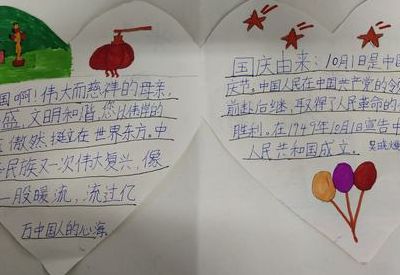 国啊!伟大而慈祥的母亲,
盛,文明和谐,您以伟岸的
傲然,挺立在世界东方,中
民族又一次伟大复兴,像
一股暖流,流过亿
万中国人的心海
国庆由来:10月1是中国
庆节,中国人民在中国共产党的领
前赴后继,取得了人民革命的
胜利,在1749年10月1日宣告中
人民共和国成立。